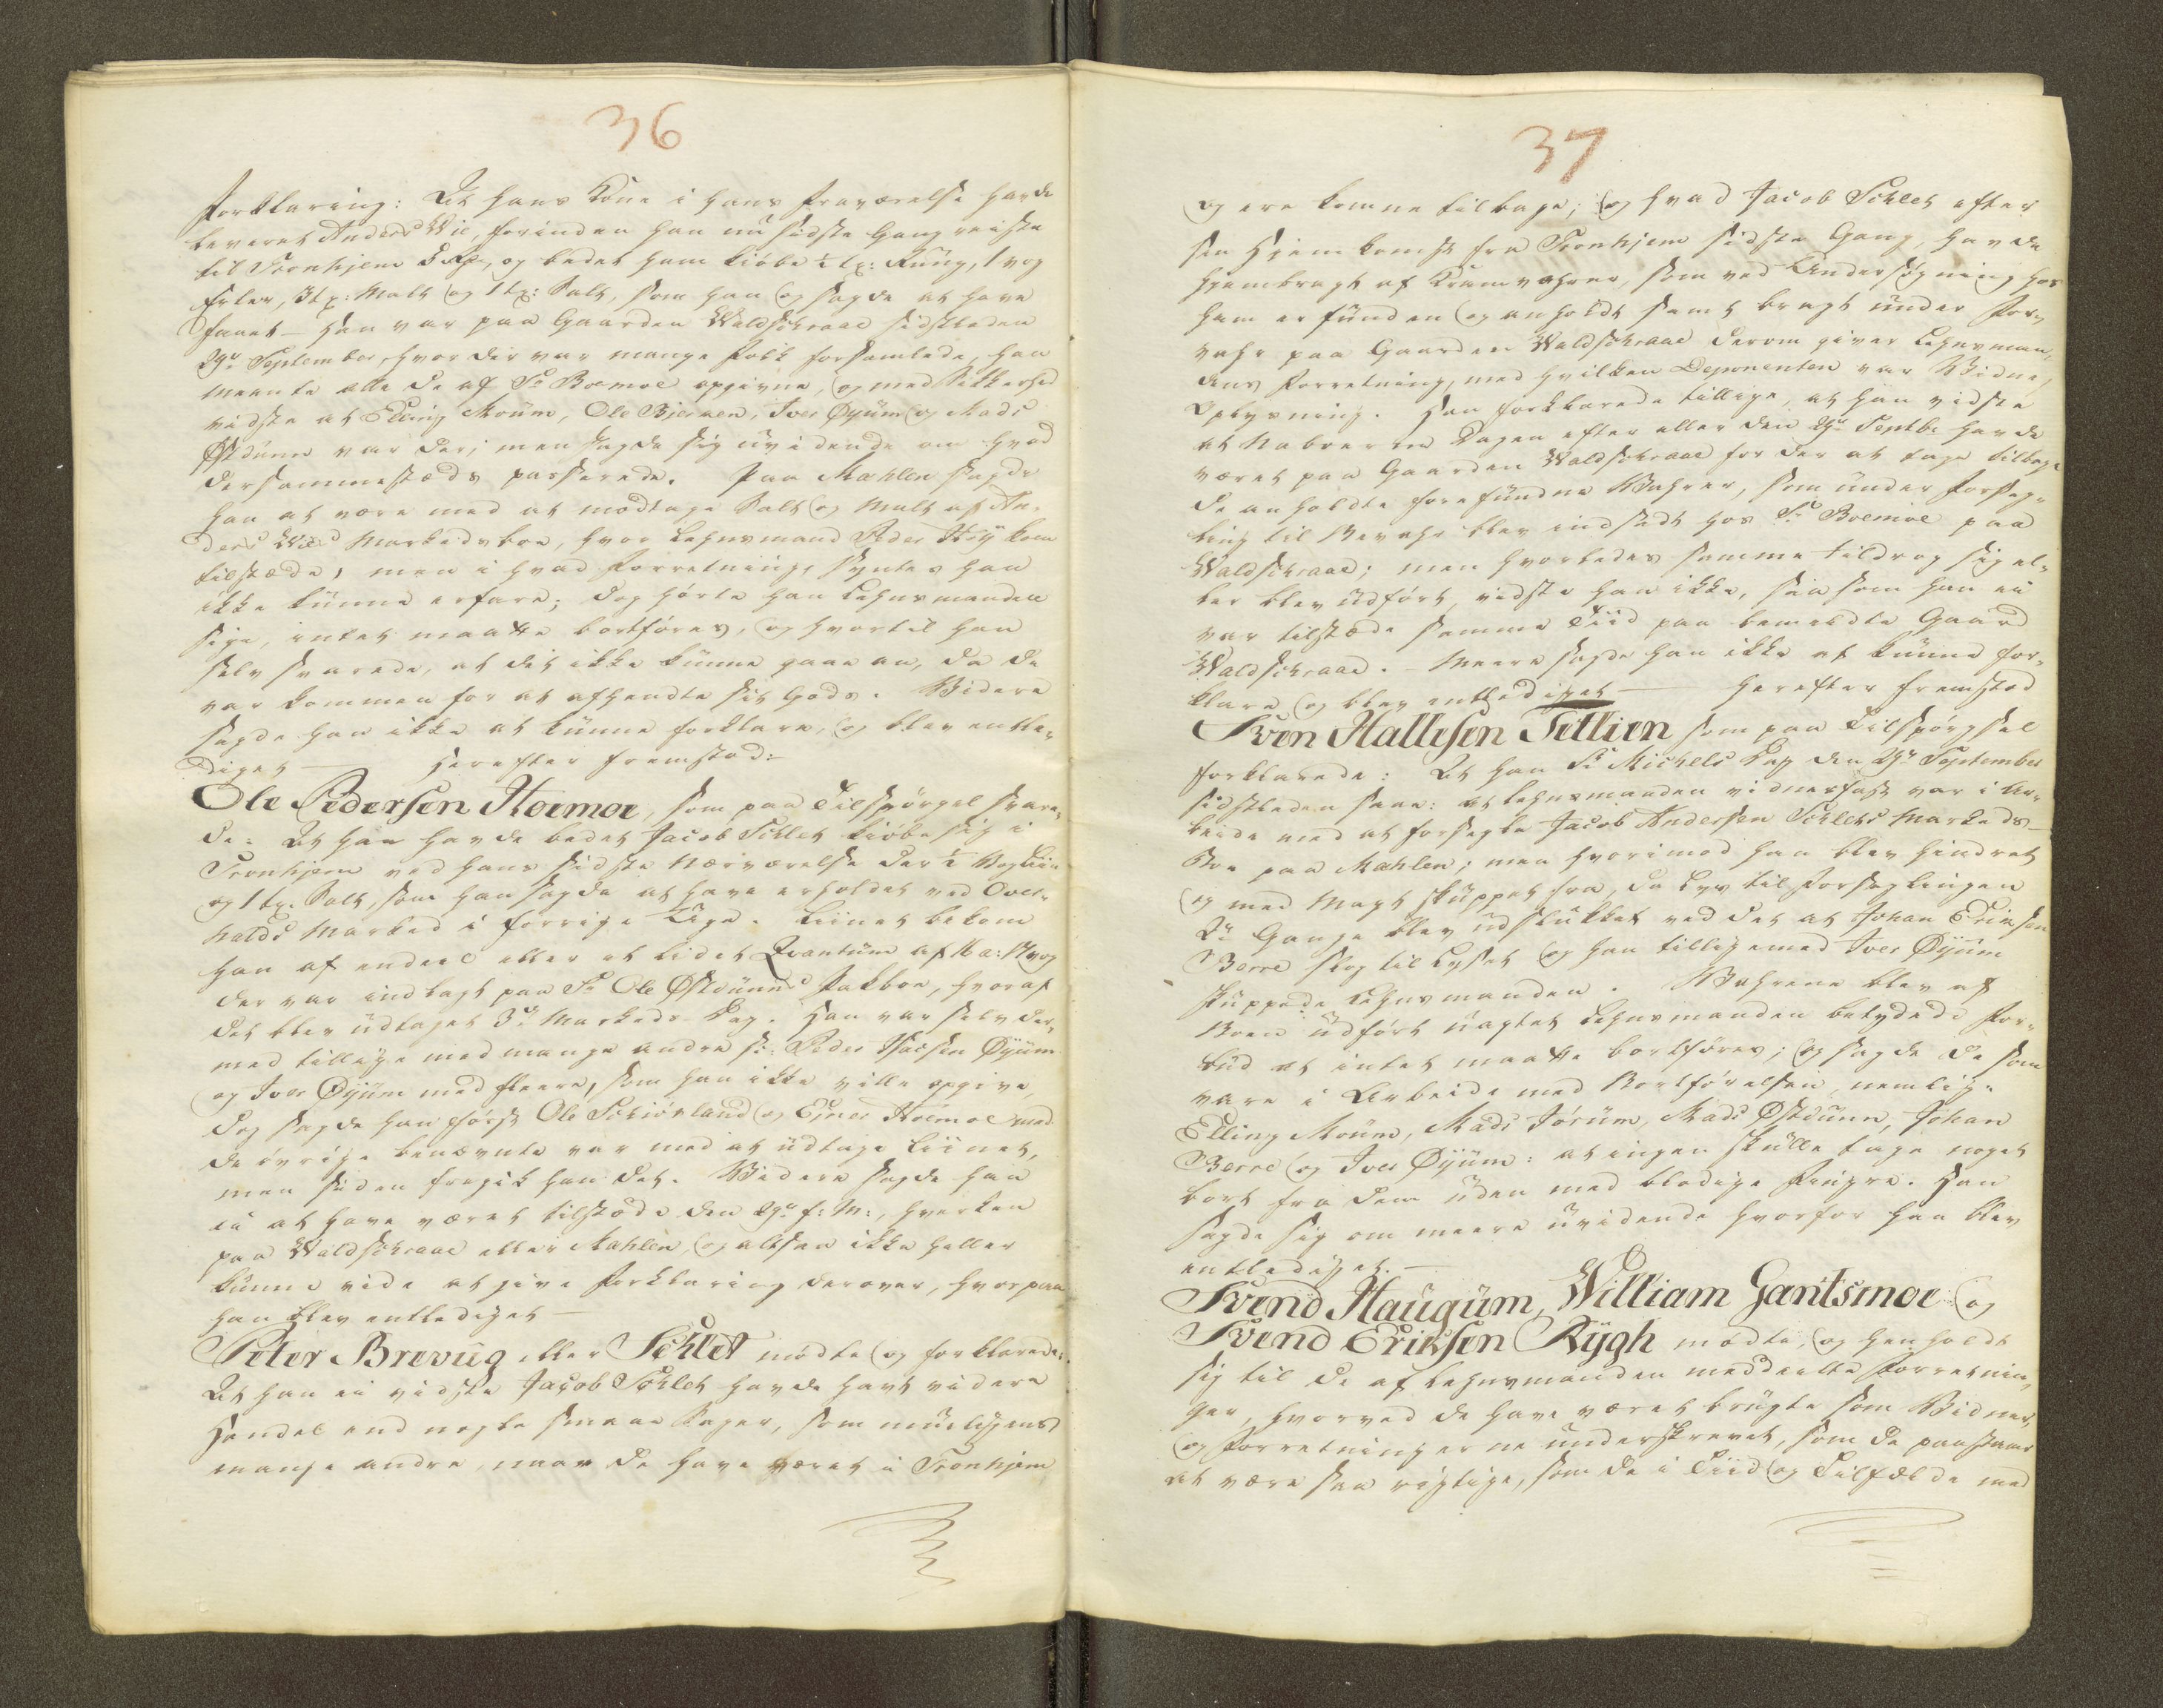 36
Forklaring: At hans Kone i hans fraværelse havde
leveret Anders Wie, forinden han nu sidste Gang reiste
til Tronhjem 5 Rd, og bedet ham kiøbe ½ tø: Rung, 1 vog
Erter, 3 tø: Malt og 1 tø: Salt, som han og sagde at have
faaet – han var paa Gaarden Waldschraae sidstleden
29de September, hvor der var mange Folk forsamlede, han
meente alle de af Sr Boemoe opgivne, og med Sikkerhed
vidste at Elling Moüm, Ole Bjernen, Iver Øyüm og Mads
Østdünn var der; men sagde sig üvidende om hvad
dersammestæds passerede. Paa Mæhlen sagde
han at være med at modtage Salt og Malt af An-
ders Wies Markedsboe, hvor Lehnsmand Peder Høÿ kom
tilstæde, men i hvad Forretning syntes han
ikke künne erfare; dog hørte han Lehnsmanden
sige, intet maatte bortføres, og hvortil han
selv svarede, at det ikke künne gaae an, da de
var kommen for at afhendte sit Gods. Videre
sagde han ikke at künne forklare, og blev entle-
diget — Herefter fremstod:
Ole Pedersen Hoemoe, som paa Tilspørgsel svare-
de: At han havde bedet Jacob Schlet kiøbe sig i
Tronhjem ved hans sidste Nærværelse der ½ Vog Liin
og 1 tø. Salt, som han sagde at have erholdet ved Over-
halds Marked i forrige Uge. Liinet bekom
han af endeel eller et lidet Qvantüm af
der var indlagt paa Sr Ole Østdünns Pakboe, hvoraf
det blev üdtaget 3de Markeds Dag. Han var selv der-
med tillige med mange andre s: Peder Isacsen Øyüm
og Iver Øyüm med fleere, som han ikke ville opgive,
dog sagde han først Ole Schiørland og Einer Hoemoe med
de øvrige benævnte var med at üdtage Liinet,
men siden fragik han det. Videre sagde han
ei at have været tilstæde den 29de f: M:, hverken
paa Waldschraae eller Mæhlen, og altsaa ikke heller
künne vide at give Forklaring derover, hvorpaa
han blev entlediget —
Peter Brevüg eller Schlet mødte og forklarede:
At han ei vidste Jacob Schlet havde havt videre
Handel end nogle smaae Sager, som mueligens
mange andre, naar de have været i Tronhjem
37
og ere komne tilbage; og hvad Jacob Schlet efter
sin Hjemkomst fra Tronhjem sidste Gang, havde
hjembragt af Kramvahrer, som ved Undersøgning hos
ham er fünden og anholdt samt bragt ünder For-
vahr paa Gaarden Waldschraae derom giver Lehnsman-
dens Forretning, med hvilken Deponenten var Vidne,
Oplysning. Han forklarede tillige, at han vidste
at Naboerne Dagen efter eller den 29de Septbr havde
været paa Gaarden Waldschraae for der at tage tilbage
de anholdte forefündne Wahrer, som ünder Forseg-
ling til Bevahr blev indsadt hos Sr Boemoe paa
Waldschraae; men hvorledes samme tildrog sig el-
ler blev üdført, vidste han ikke, saasom han ei
var tilstæde samme Tiid paa bemeldte Gaard
Waldschraae. – Meere sagde han ikke at künne for-
klare og blev entlediget — Herefter fremstod
Sven Hallesen Tetlien som paa Tilspørgsel
forklarede: At han St Michels Dag den 29de September
sidstleden saae: at Lehnsmanden vidnesfast var i Ar-
beide med at forsegle Jacob Andersen Schlets Markeds-
Boe paa Mæhlen; men hvorimod han blev hindret
og med Magt skuppet fra, da Lys til Forseglingen
2de Gange blev üdslükket ved det at Johan Eriksen
Berre slog til Lyset og han tilligemed Iver Øyüm
skuppede Lehnsmanden. Wahrene blev af
Boen üdført üagtet Lehnsmanden betydede For-
büd at intet maatte bortføres; og sagde de som
vare i Arbeide med Bortførelsen, nemlig:
Elling Moüm, Mads Jørüm, Mads Østdünn, Johan
Berre og Iver Øyüm: at ingen skülle tage noget
bort fra dem üden med blodige Fingre. Han
sagde sig om meere üvidende hvorfor han blev
entlediget. —
Svend Haugüm, William Gantsmoe og
Svend Eriksen Rygh mødte, og henholdt
sig til de af Lehnsmanden meddeelte Forretnin-
ger, hvorved de have været brügte som Vidner,
og Forretningerne ünderskrevet, som de paastaae
at være saa rigtige, som de i Tiid og Tilfælde med